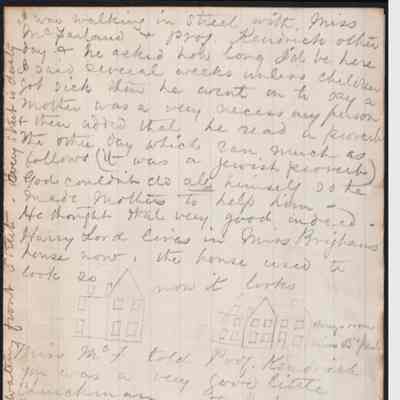 I was walking in street with Miss
McFarland & Prof. Kendrick other
day & he asked how long I'd be here
I said several weeks unless children
got sick then he went on to say a
mother was a very necessary person
& then added that he read a proverb
the other day which ran much as
follows (it was a Jewish proverb)
God couldn't do all himself so he
made Mothers to help him -
He thought that very good indeed -
Harry Lord lives in Miss Brighams
house now, the house used to
look so now it looks
Miss McF told Prof. Kendrick
you was a very good little